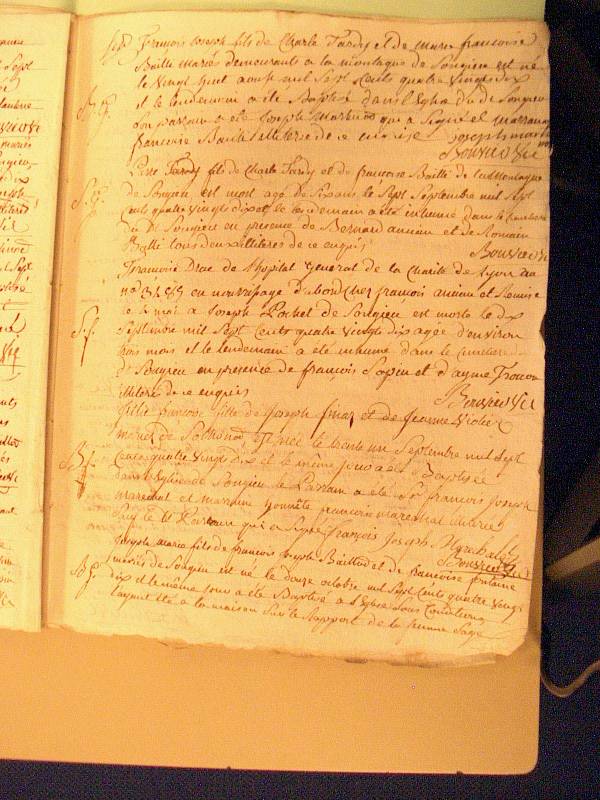 François Joseph fils de Charle Tardy et de Marie francoise
Baille Mariés demeurant a la montagne de Songieu est né
le Vingt huit aoust mil Sept Cents quatre Vingt dix
B. f. et le lendemain a été Baptisé dans l'Eglise du de Songieu
Son parrain a été Joseph Martinod qui a Signé et Marraine
francoise Baille illiterée de ce enquise Joseph martinod
Bouvier Vic
Tardy fils de Charle Tardy et de francoise Baille de la Montagne
de Songieu est mort agé de Six ans le Sept Septembre mil Sept
S. f. Cents quatre Vingt dix et le lendemain a été inhumé dans le Cimetiere
du Songieu en presence de Bernard ancian et de Romain
Balli tous deux illiterés de ce enquis
Bouvier Vic
francoise de l'hopital General de la Charité de Lyon au
n° en nourrissage d'abord Chez françois anciane et Remise
le mai a Joseph Pochet de Songieu est morte le dix
S. f. Septembre mil Sept Cents quatre Vingt dix agée d'environ
trois mois et le lendemain a été inhumé dans le Cimetiere
de Songieu en presence de françois Sapin et d'ayme
illiteré de ce enquis
Bouvier Vic
francoise fille de Joseph et de Jeanne
mariés de est née le trente un Septembre mil Sept
B. f. Cents quatre Vingt dix et le même jour a été Baptisée
dans l'Eglise de Songieu le Parrain a été Sr francois Joseph
Marechal et marraine honnête francoise marechal
le Sr Parrain qui a Signé françois Joseph Marechal
Bouvier Vic
Joseph marie fils de francois Joseph Bailliod et de francoise fontaine
mariés de Songieu est né le douze octobre mil Sept Cents quatre Vingt
B. f. dix et le même jour a été Baptisé a l'Eglise Sous Condition
l'ayant été a la maison Sur le Rapport de la femme Sage